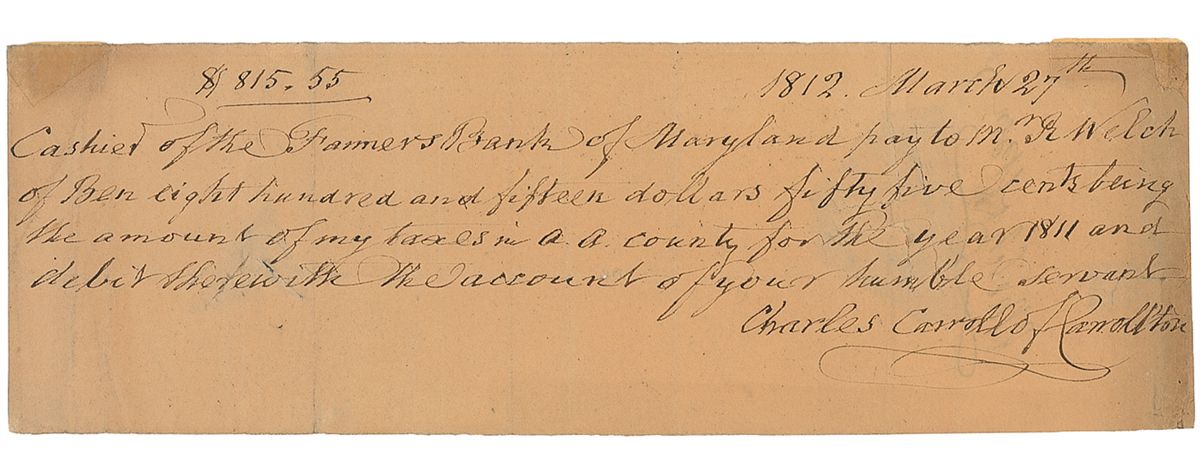 $ 815. 55 1812. March 27th
Cashier of the Farmers Bank of Maryland pay to Mr. R Welch
of Ben eight hundred and fifteen dollars fifty five cents being
the amount of my taxes in A. A. county for the year 1811 and
debit therewith the account of your humble servant
Charles Carroll of Carrollton